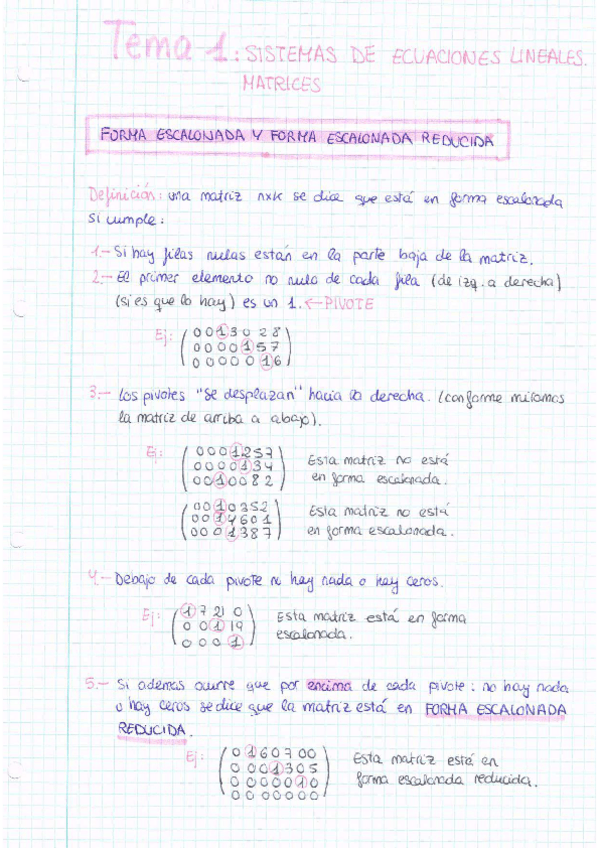 Tema 1: SISTEMAS DE ECUACIONES LINEALES.
MATRICES
FORMA ESCALONADA Y FORMA ESCALONADA REDUCIDA
Definición: una matriz nxk se dice que está en forma escalonada
si cumple:
1.- Si hay filas nulas están en la parte baja de la matriz.
2.- El primer elemento no nulo de cada fila (de izq. a derecha)
(si es que lo hay) es un 1. ← PIVOTE
Ej: 0 0 1 3 0 2 8
0 0 0 0 1 5 7
0 0 0 0 0 1 6
3.- Los pivotes "se desplazan" hacia la derecha. (conforme miramos
la matriz de arriba a abajo).
Ej: 0 0 0 1 2 5 7 Esta matriz no está
0 0 0 0 1 3 4 en forma escalonada.
0 0 1 0 0 8 2
0 0 1 0 3 5 2 Esta matriz no está
0 0 1 4 6 0 1 en forma escalonada.
0 0 0 1 3 8 7
4.- Debajo de cada pivote no hay nada o hay ceros.
Ej: 1 7 21 0 Esta matriz está en forma
0 0 1 19 escalonada.
0 0 0 1
5.- Si además ocurre que por encima de cada pivote: no hay nada
o hay ceros se dice que la matriz está en FORMA ESCALONADA
REDUCIDA.
Ej: 0 1 6 0 7 0 0 Esta matriz está en
0 0 0 1 3 0 5 forma escalonada reducida.
0 0 0 0 0 1 0
0 0 0 0 0 0 0